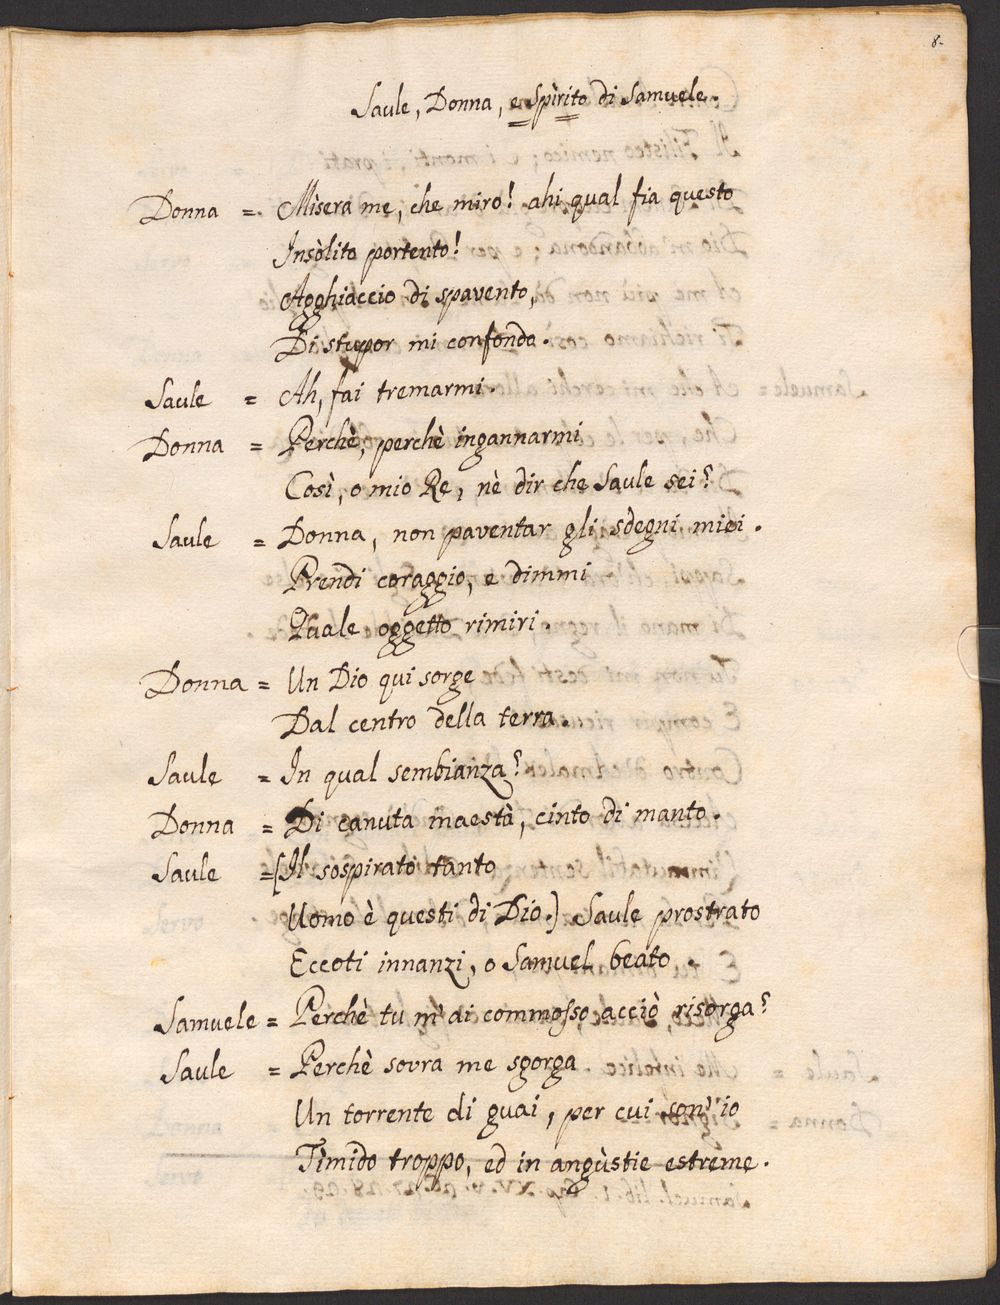 8.
Saule, Donna, e Spìrito di Samuele.
Donna = Mìsera me, che miro! ahi qual fia questo
Insòlito portento!
Agghiaccio di spavento,
Di stupor mi confondo.
Saule = Ah, fai tremarmi.
Donna = Perchè, perchè ingannarmi
Così, o mio Re, nè dir che Saule sei?
Saule = Donna, non paventar gli sdegni miei.
Prendi coraggio, e dimmi
Quale oggetto rimiri.
Donna = Un Dio qui sorge
Dal centro della terra.
Saule = In qual sembianza?
Donna = Di canuta maestà, cinto di manto.
Saule = [Il sospirato tanto
Uomo è questi di Dio.] Saule prostrato
Eccoti innanzi, o Samuel beato.
Samuele = Perchè tu m' ai commosso acciò risorga?
Saule = Perchè sovra me sgorga
Un torrente di guai, per cui son' io
Tìmido troppo, ed in angùstie estreme.